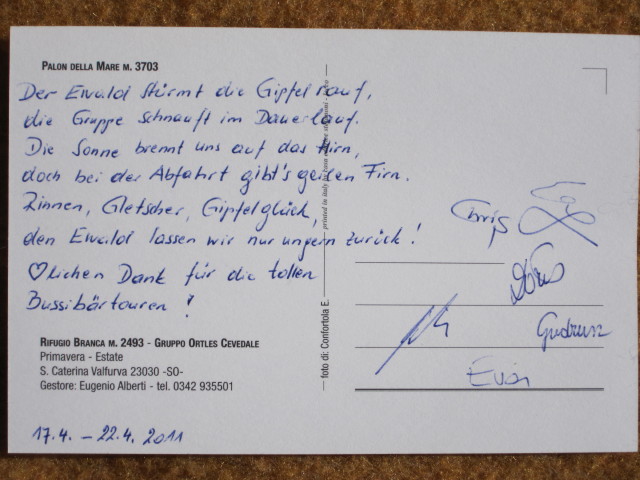 PALON DELLA MARE M. 3703
Der Ewald stürmt die Gipfel rauf,
die Gruppe schnauft im Dauerlauf.
Die Sonne brennt uns auf das Hirn,
doch bei der Abfahrt gibt's geilen Firn.
Zinnen, Gletscher, Gipfelglück,
den Ewald lassen wir nur ungern zurück!
♡lichen Dank für die tollen
Bussibärtouren!
RIFUGIO BRANCA M. 2493 - GRUPPO ORTLES CEVEDALE
Primavera - Estate
S. Caterina Valfurva 23030 -SO-
Gestore: Eugenio Alberti - tel. 0342 935501
17.4. – 22.4. 2011
foto di: Comfortola E.
printed in italy
Chris
Doris
Gudrun
Evi